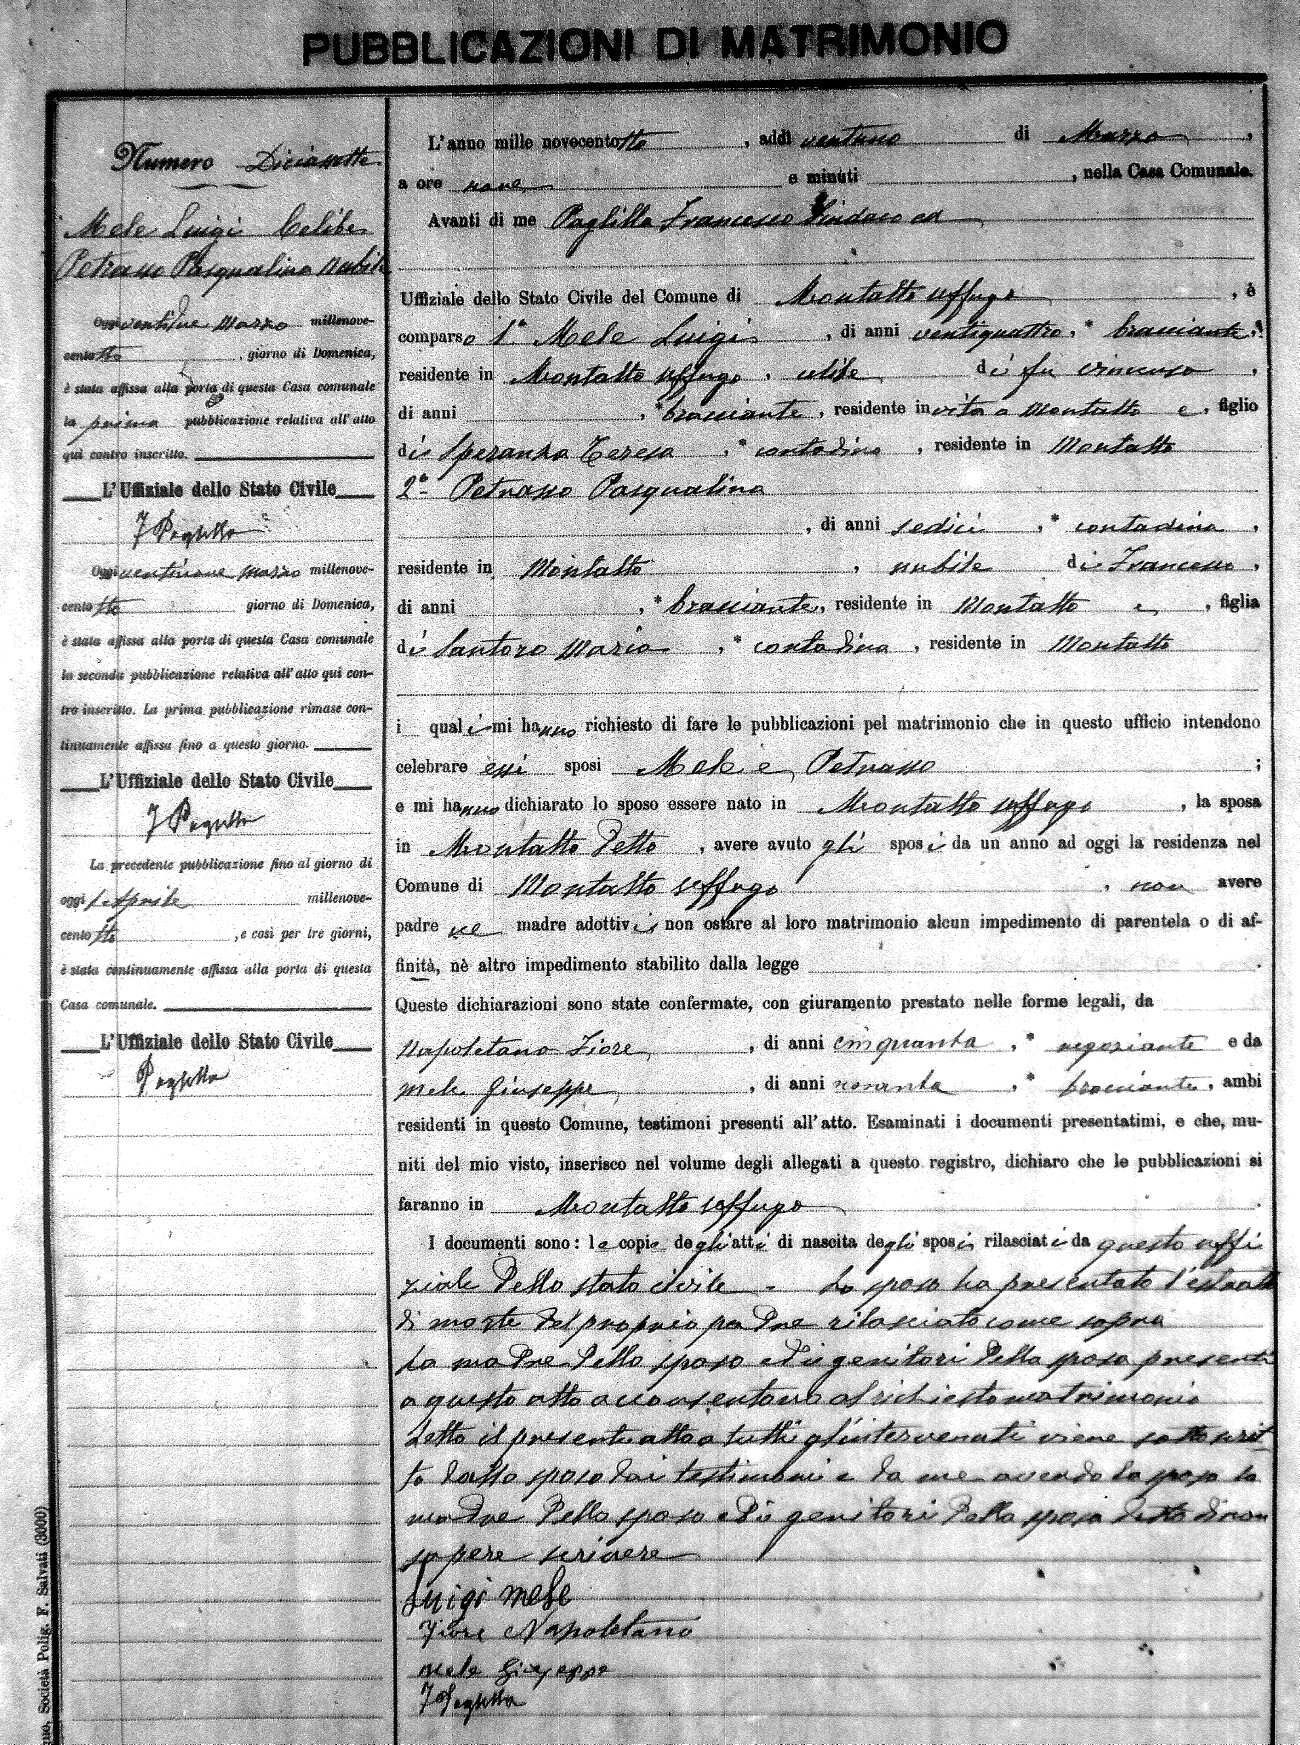 PUBBLICAZIONI DI MATRIMONIO
Numero Diciassette
Mele Luigi Celibe
Petrasso Pasqualina nubile
Oggi ventidue Marzo millenove-
cento otto, giorno di Domenica,
è stata affissa alla porta di questa Casa comunale
la prima pubblicazione relativa all'atto
qui contro inscritto.
L'Uffiziale dello Stato Civile
F Paglilla
Oggi ventinove Marzo millenove-
cento otto giorno di Domenica,
è stata affissa alla porta di questa Casa comunale
la seconda pubblicazione relativa all'atto qui con-
tro inscritto. La prima pubblicazione rimase con-
tinuamente affissa fino a questo giorno.
L'Uffiziale dello Stato Civile
F Paglilla
La precedente pubblicazione fino al giorno di
oggi 1 Aprile millenove-
cento otto, e così per tre giorni,
è stata continuamente affissa alla porta di questa
Casa comunale.
L'Uffiziale dello Stato Civile
Paglilla
L'anno mille novecento otto, addì ventuno di Marzo,
a ore nove e minuti , nella Casa Comunale.
Avanti di me Paglilla Francesco Sindaco ed
Uffiziale dello Stato Civile del Comune di Montalto Uffugo, è
comparso 1° Mele Luigi, di anni ventiquattro, * bracciante,
residente in Montalto Uffugo, celibe di fu Vincenzo,
di anni , * bracciante, residente in vita a Montalto e, figlio
di Speranza Teresa, * contadina, residente in Montalto
2° Petrasso Pasqualina
, di anni sedici, * contadina,
residente in Montalto, nubile di Francesco,
di anni , * bracciante, residente in Montalto e, figlia
di Santoro Maria, * contadina, residente in Montalto
i quali mi hanno richiesto di fare le pubblicazioni pel matrimonio che in questo ufficio intendono
celebrare essi sposi Mele e Petrasso;
e mi hanno dichiarato lo sposo essere nato in Montalto Uffugo, la sposa
in Montalto Detto, avere avuto gli sposi da un anno ad oggi la residenza nel
Comune di Montalto Uffugo, non avere
padre ne madre adottivi, non ostare al loro matrimonio alcun impedimento di parentela o di af-
finità, nè altro impedimento stabilito dalla legge.
Queste dichiarazioni sono state confermate, con giuramento prestato nelle forme legali, da
Napoletano Fiore, di anni cinquanta, * negoziante e da
Mele Giuseppe, di anni novanta, * bracciante, ambi
residenti in questo Comune, testimoni presenti all'atto. Esaminati i documenti presentatimi, e che, mu-
niti del mio visto, inserisco nel volume degli allegati a questo registro, dichiaro che le pubblicazioni si
faranno in Montalto Uffugo.
I documenti sono: le copie degli atti di nascita degli sposi rilasciati da questo uffi
ziale Dello stato civile - Lo sposo ha presentato l'estratto
di morte del proprio padre rilasciato come sopra
La madre Dello sposo e Di genitori Della sposa presenti
a questo atto acconsentono al richiesto matrimonio
Letto il presente atto a tutti gl'intervenuti viene sottoscrit
to dallo sposo dai testimoni e da me avendo la sposa la
madre Dello sposo e Di genitori Della sposa detto di non
sapere scrivere
Luigi Mele
Fiore Napoletano
Mele Giuseppe
F Paglilla
Società Polig. F. Salvati (3000)